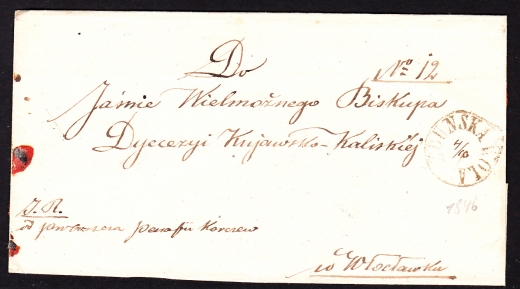 Do
No 12
Jaśnie Wielmożnego Biskupa
Dyecezyi Kujawsko-Kaliskiéj
ZDUŃSKA WOLA
4/10
1846
J. R.
od proboszcza Parafii Korczew
w Włocławku